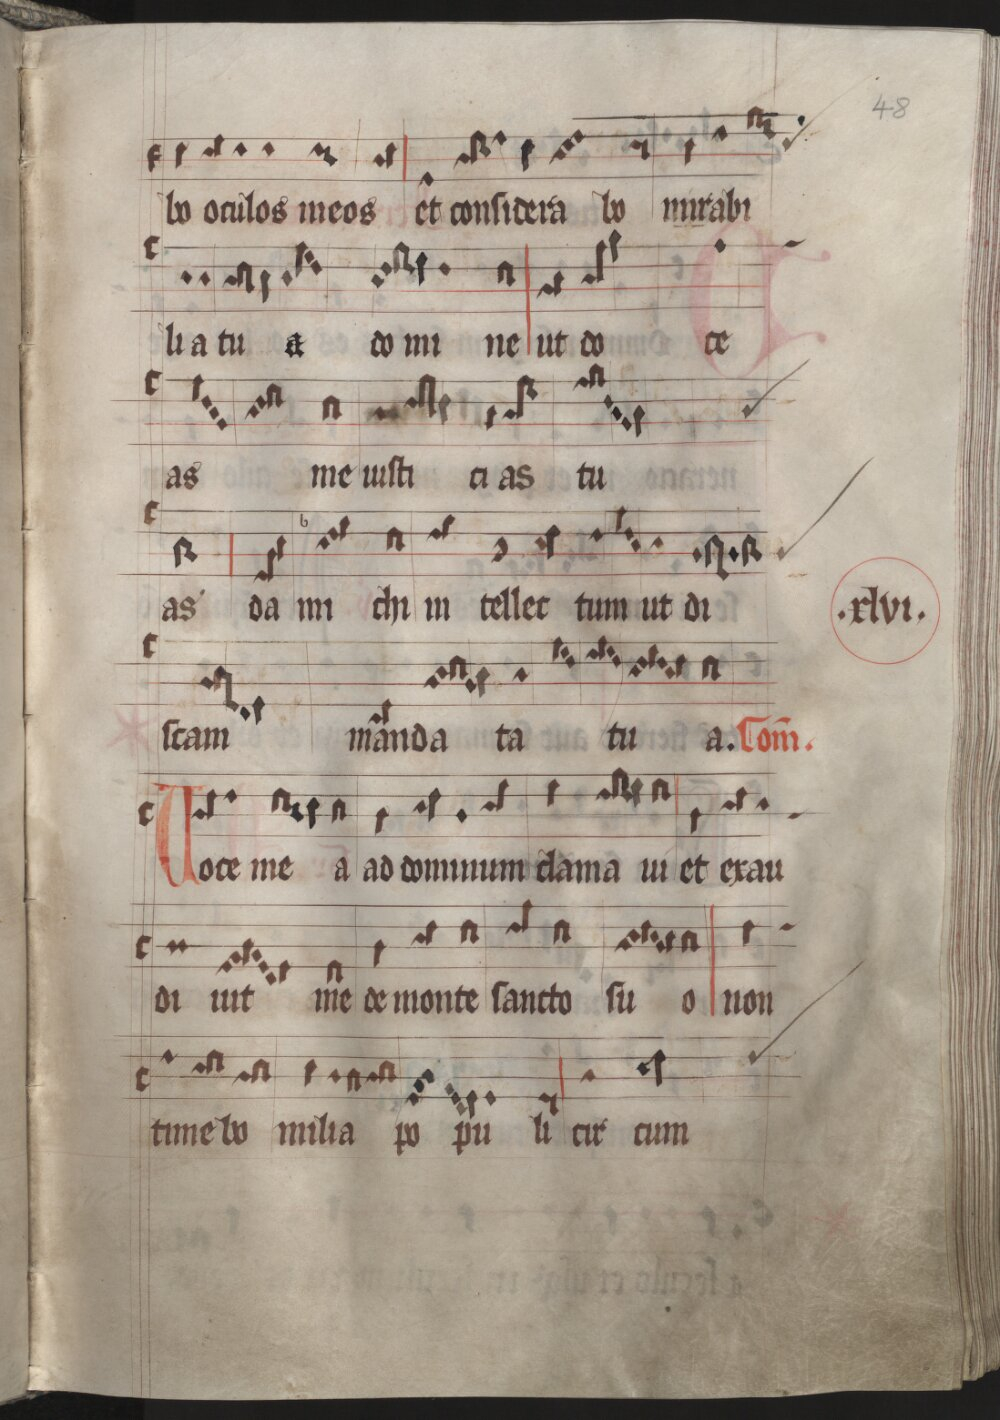 48
bo oculos meos et considera bo mirabi
li a tu a do mi ne ut do ce
as me iusti ci as tu
as da mi chi in tellec tum ut di
.xlvi.
scam manda ta tu a. Com̄.
Uoce me a ad dominum clama ui et exau
di uit me de monte sancto su o non
time bo milia po pu li cir cum